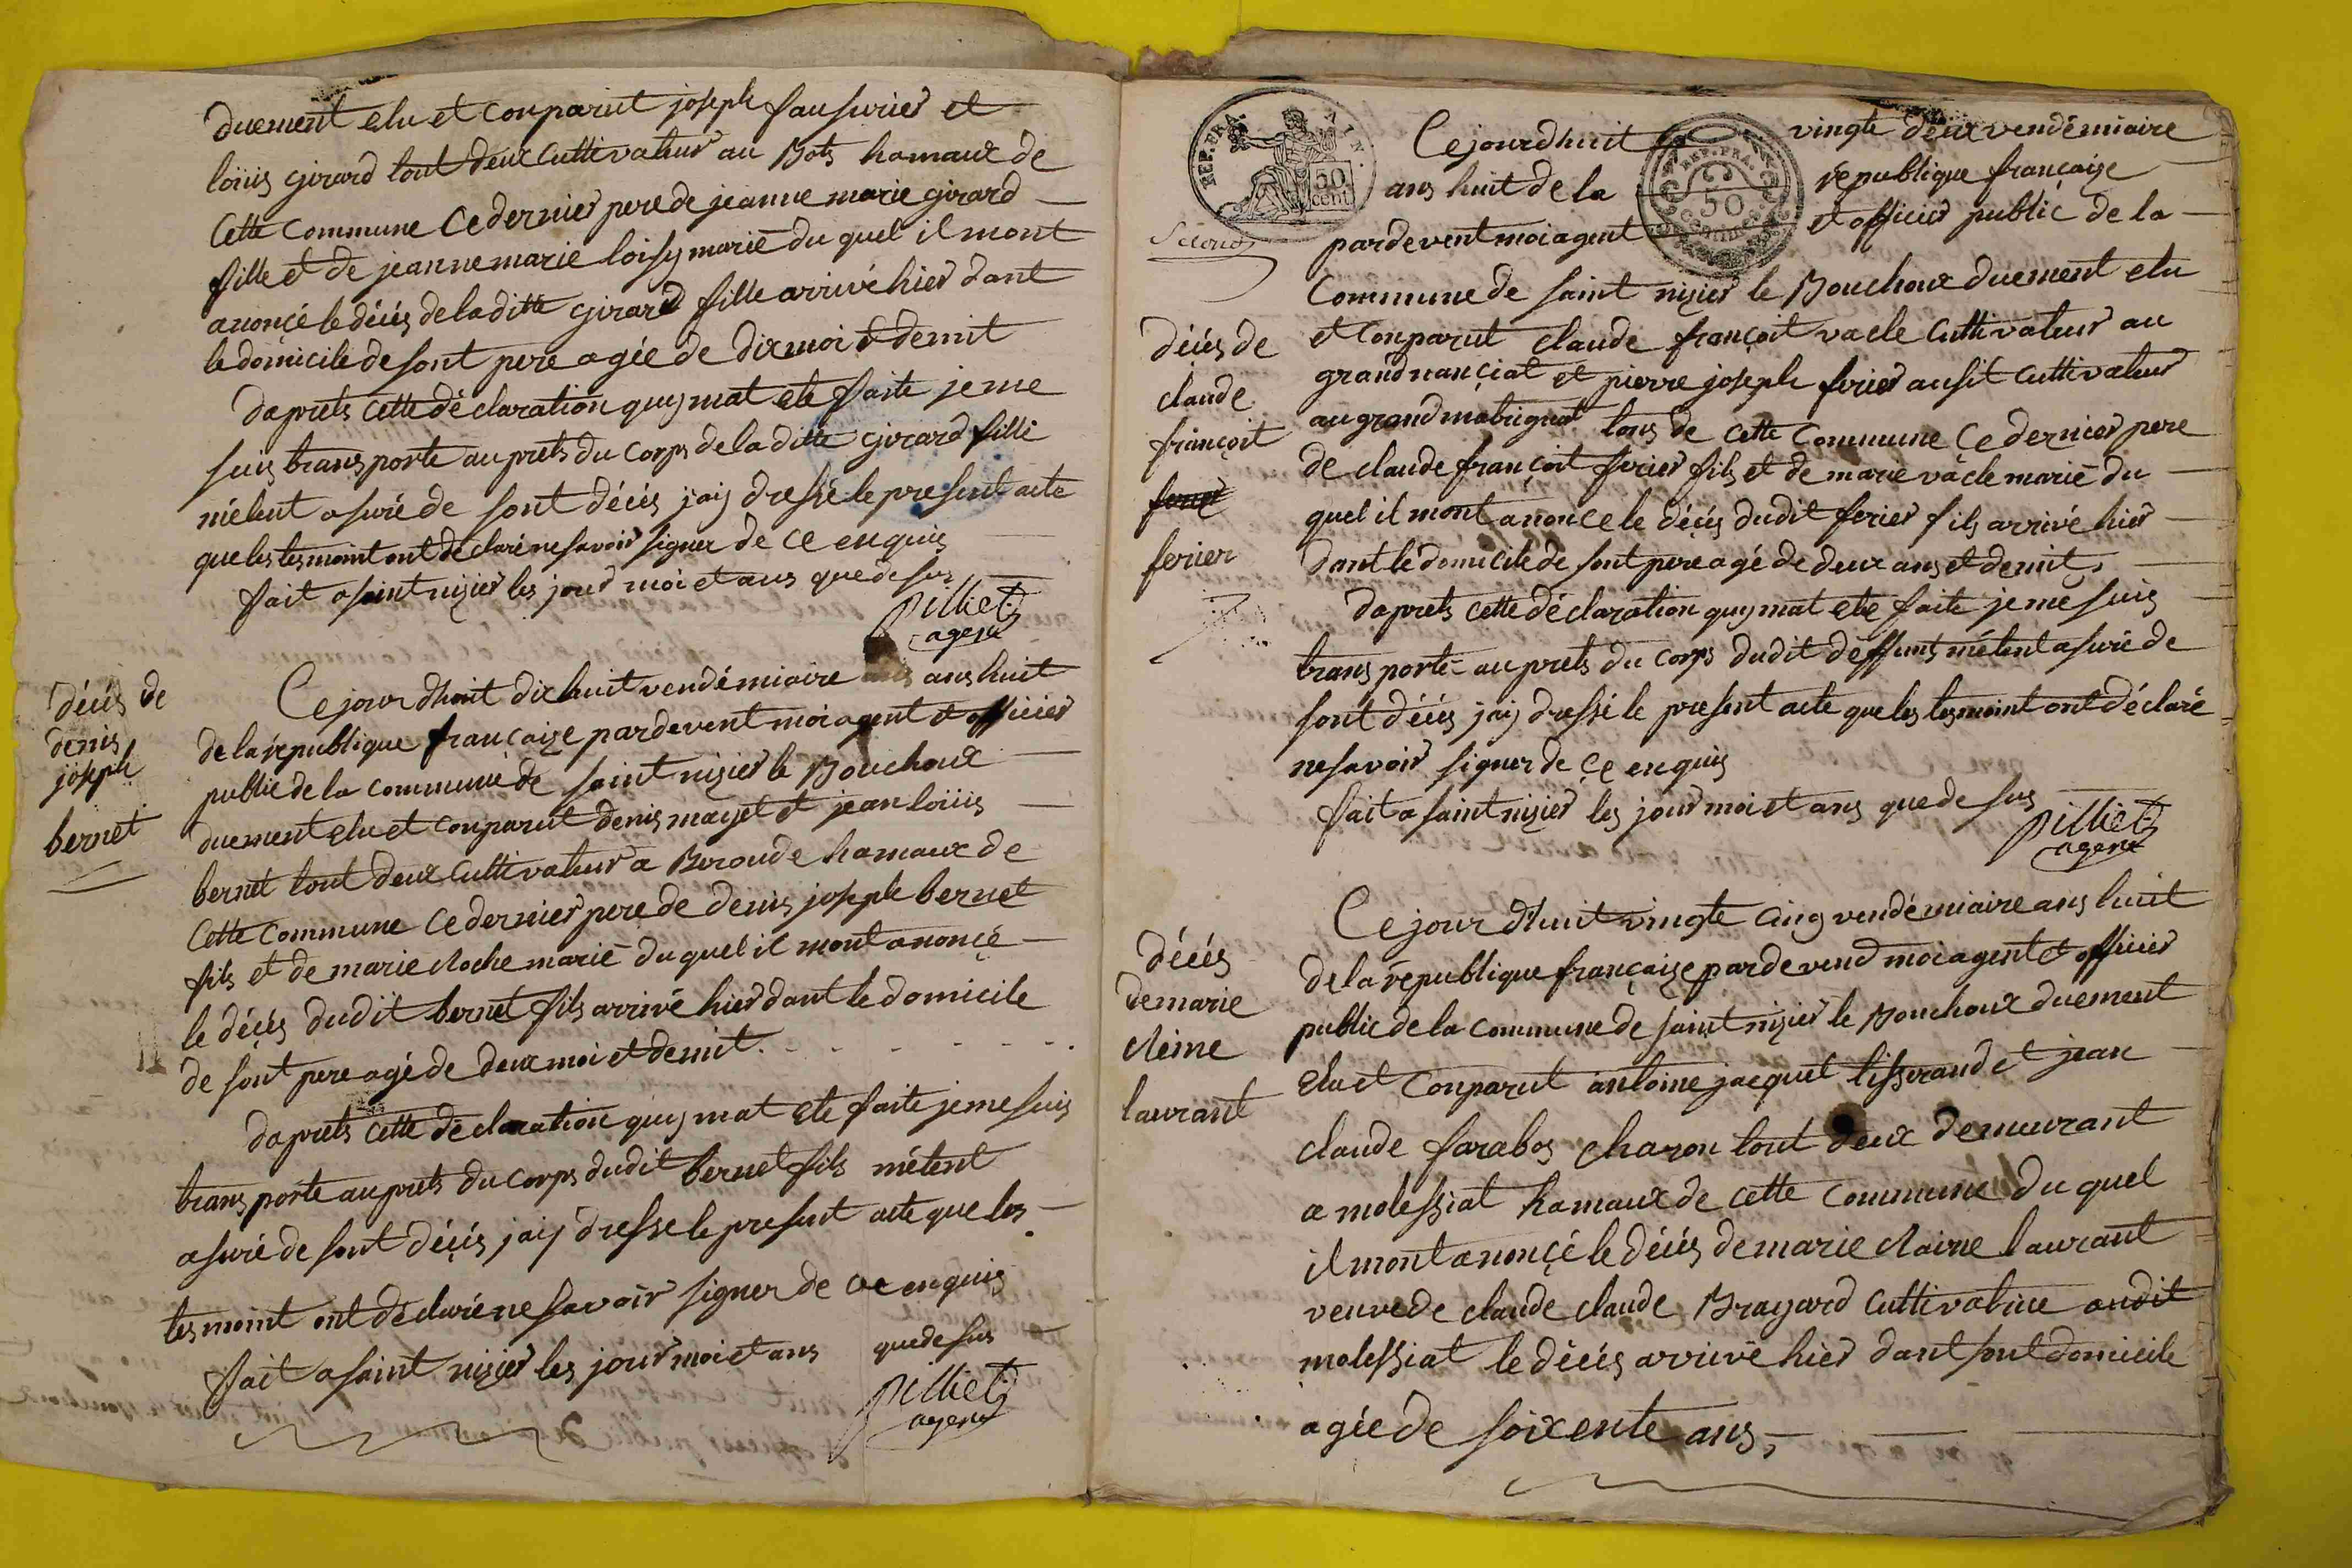 duement elu et conparut joseph fausurier et
loüis girard tout deux cultivateur au Bots hamaux de
cette commune ce dernier pere de jeanne marie girard
fille et de jeanne marie loisy marié du quel il mont
anonçé le déçés de la ditte girard fille arrivé hier dant
le domicile de sont pere agée de dix moi et demit
daprets cette déclaration quy mat ete faite je me
suis transporte auprets du corps de la ditte girard fille
mélent asuré de sont décés j'aij dressé le present acte
que les tesmoint ont déclaré ne savoir signer de ce enquis
fait a saint nizier les jour moi et ans que de sus
pilliet
agent
décés de
denis
joseph
bernet
Ce jour dhuit dix huit vendémiaire ans huit
de la republique françaize pardevent moi agent et officier
public de la commune de saint nizier le Bouchoux
duement elu et conparut denis mayet et jean loüis
bernet tout deux cultivateur a Beroude hamaux de
cette commune ce dernier pere de denis joseph bernet
fils et de marie cloche marié du quel il mont anonçé
le déçés dudit bernet fils arrivé hier dant le domicile
de sont pere agé de deux moi et demit.
daprets cette déclaration quy mat ete faite je me suis
transporte auprets du corps dudit bernet fils métent
asuré de sont déçés jaij dresse le present acte que les
tesmoint ont déclaré ne savoir signer de ce enquis
fait a saint nizier les jour moi et ans que de sus
pilliet
agent
REP. FRA.
50
cent.
REP. FRA.
50
Ce jourdhuit vingte deux vendémiaire
ans huit de la republique françaize
pardevent moi agent et officier public de la
commune de saint nizier le Bouchoux duement elu
et conparut claude françoit vacle cultivateur au
grand nanciat et pierre joseph ferier ausit cultivateur
au grand matrignat tous de cette commune ce dernier pere
de claude françoit ferier fils et de marie vacle marié du
quel il mont anonce le déçés dudit ferier fils arrivé hier
dant le domicile de sont pere agé de deux ans et demit,
daprets cette déclaration quy mat ete faite je me suis
transporté auprets du corps dudit deffunt métent asuré de
sont déçés jaij dressé le present acte que les tesmoint ont déclaré
ne savoir signer de ce enquis
fait a saint nizier les jour moi et ans que de sus
pilliet
agent
déçés de
claude
françoit
ferier
Ce jour d'huit vingte cinq vendémiaire ans huit
de la republique françaize pardevend moi agent et officier
public de la commune de saint nizier le Bouchoux duement
elu et conparut antoine jacquet tisserand et jean
claude farabos charon tout deux demeurant
a molessiat hamaux de cette commune du quel
il mont anonçé le déçés de marie claire laurant
veuve de claude claude Brayard cultivatrice audit
molessiat le déçés arrivé hier dant sont domicile
agée de soixente ans,
décés
de marie
cleine
laurant